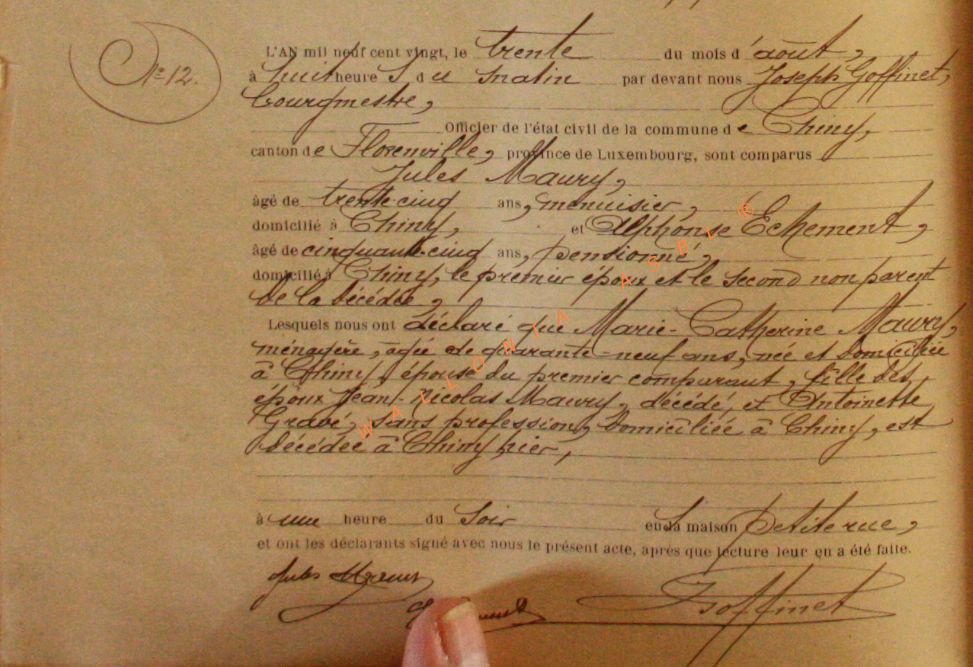 Nº 12.
L'AN mil neuf cent vingt, le trente du mois d'août,
à huit heures du matin par devant nous Joseph Goffinet,
bourgmestre,
Officier de l'état civil de la commune de Chiny,
canton de Florenville, province de Luxembourg, sont comparus
Jules Maury,
âgé de trente-cinq ans, menuisier,
domicilié à Chiny, et Alphonse Echement,
âgé de cinquante-cinq ans, pensionné,
domicilié à Chiny, le premier époux et le second non parent
de la décédée,
Lesquels nous ont déclaré que Marie-Catherine Maury,
ménagère, âgée de quarante-neuf ans, née et domiciliée
à Chiny, épouse du premier comparant, fille des
époux Jean-Nicolas Maury, décédé, et Antoinette
Gravé, sans profession, domiciliée à Chiny, est
décédée à Chiny hier,
à une heure du soir en sa maison petite rue,
et ont les déclarants signé avec nous le présent acte, après que lecture leur en a été faite.
Jules Maury
J Goffinet